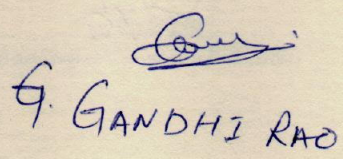 G. GANDHI RAO